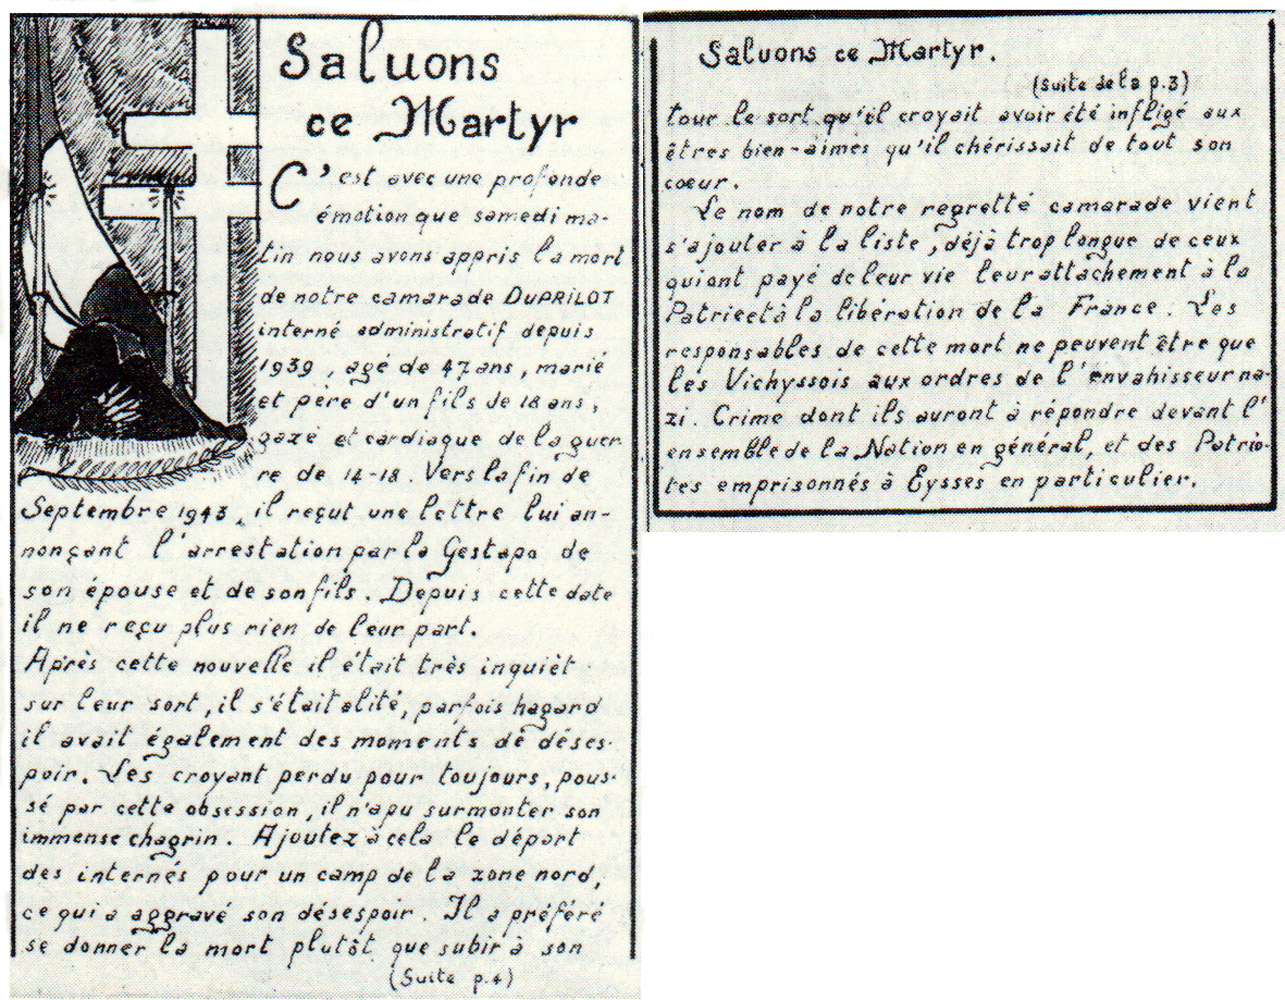 Saluons
ce Martyr
C'est avec une profonde
émotion que samedi ma-
tin nous avons appris la mort
de notre camarade DUPRILOT
interné administratif depuis
1939, agé de 47 ans, marié
et père d'un fils de 18 ans,
gazé et cardiaque de la guer-
re de 14-18. Vers la fin de
Septembre 1943, il reçut une lettre lui an-
nonçant l'arrestation par la Gestapo de
son épouse et de son fils. Depuis cette date
il ne reçu plus rien de leur part.
Après cette nouvelle il était très inquièt
sur leur sort, il s'était alité, parfois hagard
il avait également des moments de déses-
poir. Les croyant perdu pour toujours, pous-
sé par cette obsession, il n'a pu surmonter son
immense chagrin. Ajoutez à cela le départ
des internés pour un camp de la zone nord,
ce qui a aggravé son désespoir. Il a préféré
se donner la mort plutôt que subir à son
(Suite p.4)
Saluons ce Martyr.
(suite de la p.3)
tour le sort qu'il croyait avoir été infligé aux
êtres bien-aimés qu'il chérissait de tout son
coeur.
Le nom de notre regretté camarade vient
s'ajouter à la liste, déjà trop longue de ceux
qui ont payé de leur vie leur attachement à la
Patrie et à la libération de la France. Les
responsables de cette mort ne peuvent être que
les Vichyssois aux ordres de l'envahisseur na-
zi. Crime dont ils auront à répondre devant l'
ensemble de la Nation en général, et des Patrio-
tes emprisonnés à Eysses en particulier.